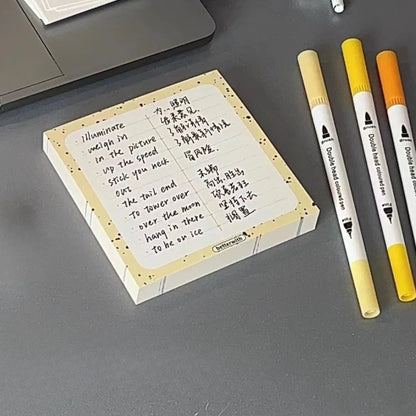 illuminate
weigh in
in the picture
up the speed
stick you neck
out
the tail end
to tower over
over the moon
hang in there
to be on ice
为...照明
发表意见
了解详情
冒风险
末端
高出,胜过
欣喜若狂
坚持下去
搁置
betterwith
Double head coloured pen
Double head coloured pen
Double head coloured pen